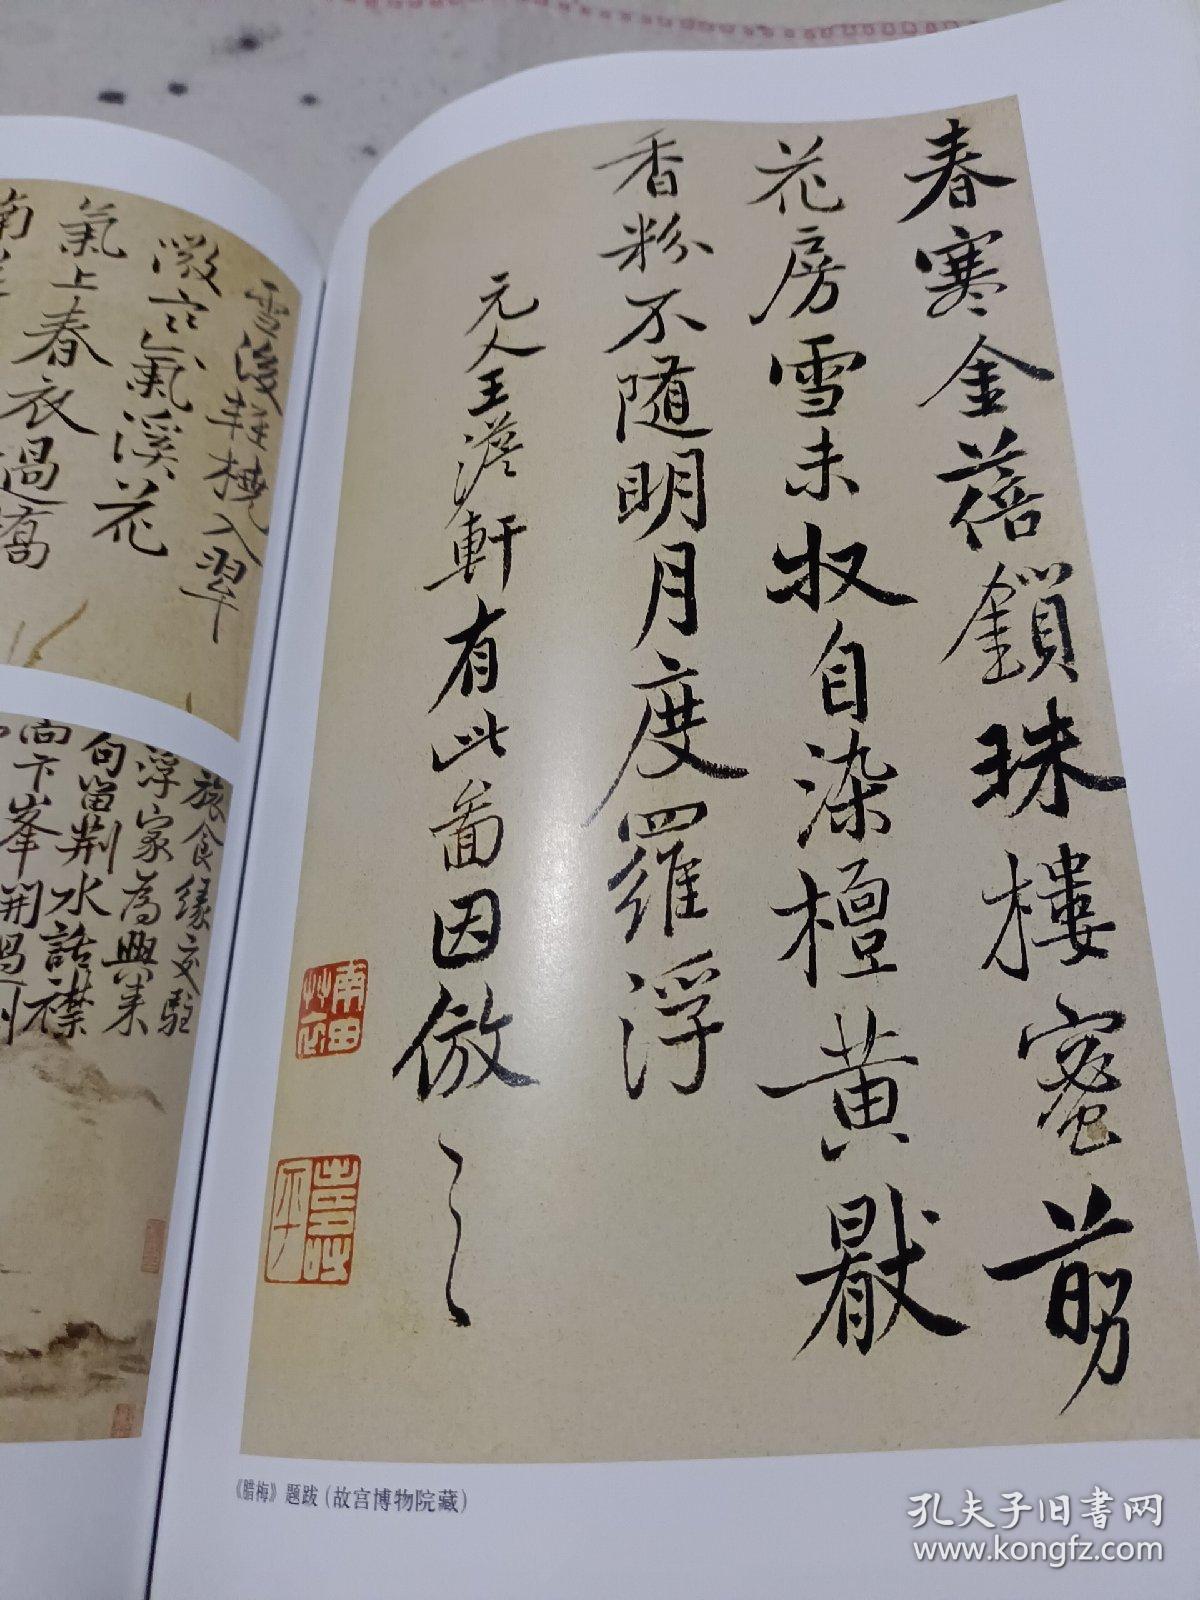 春寒金蓓鎖珠樓蜜剪
花房雪未收自染檀黄厭
香粉不随明月度羅浮
元人王澹軒有此啚因倣之
南田艸衣
壽平
《腊梅》题跋(故宫博物院藏)
雪後輕橈入翠
微宀氣溪花
氣上春衣過
旅食缘交駐
浮家為興来
句留荆水話襟
向卞峯開
孔夫子旧书网
www.kongfz.com